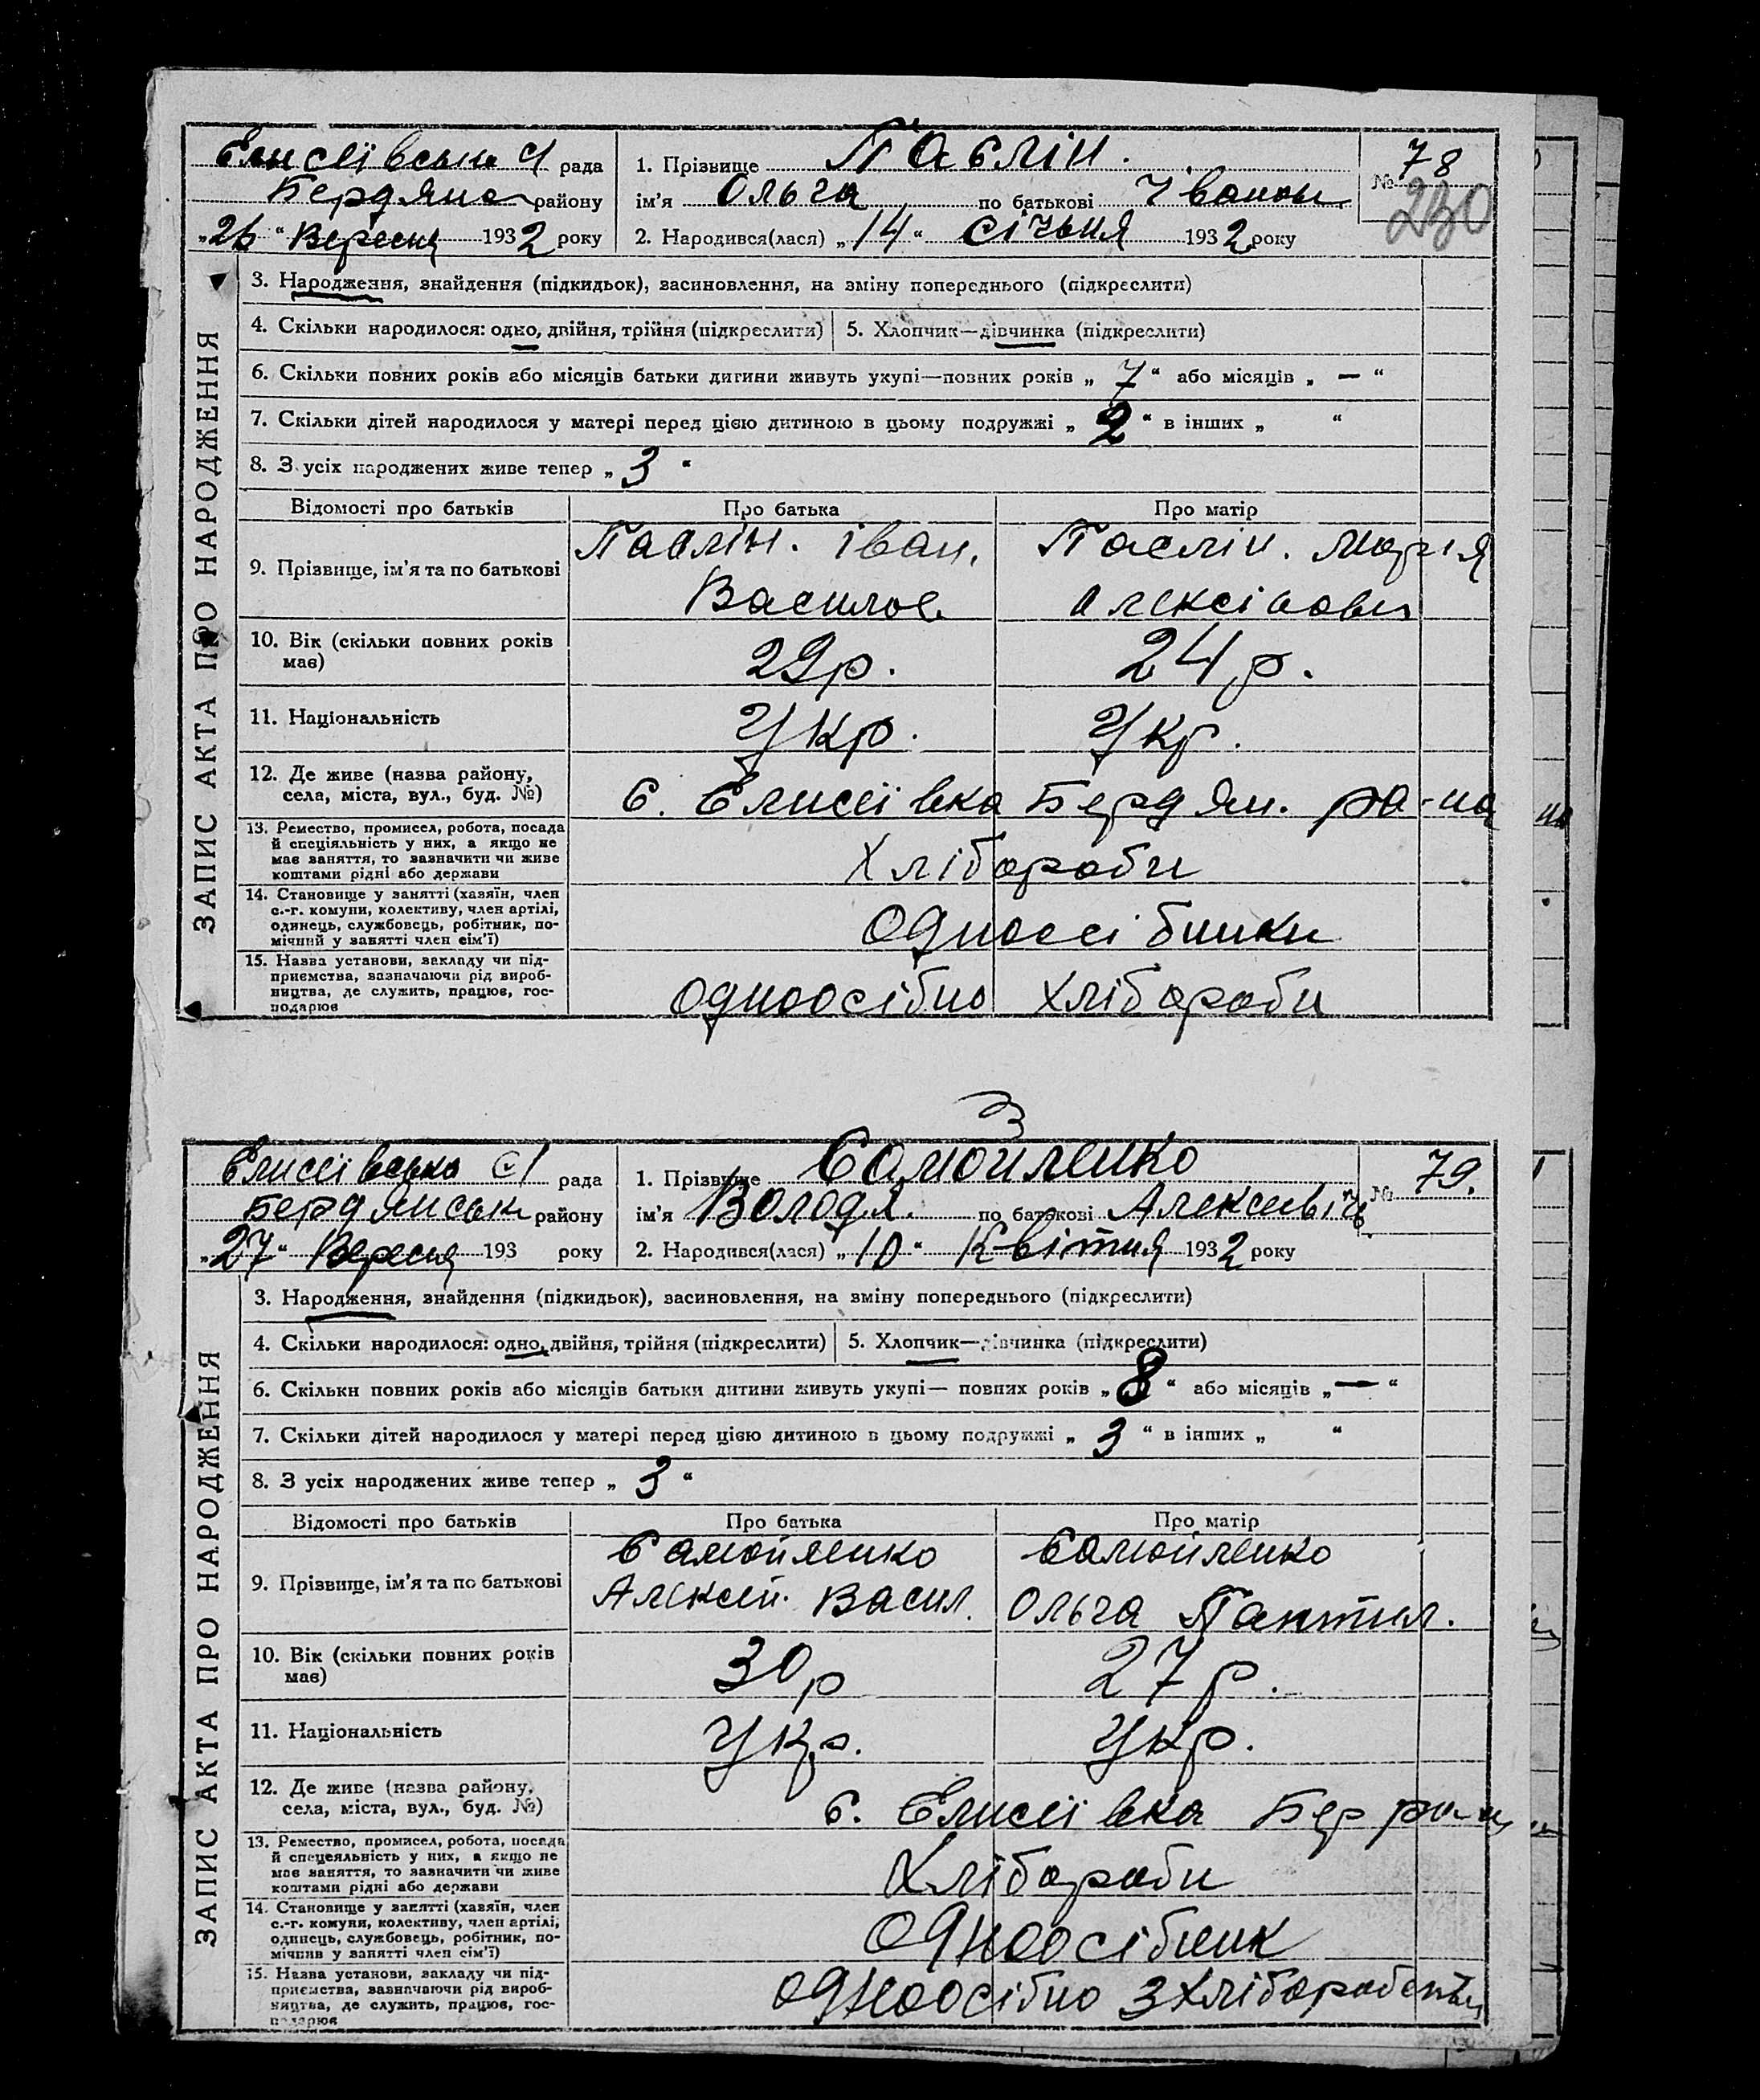 Елисеївська с/ рада
Бердянс району
„26“ Вересня 1932 року
1. Прізвище Павлін.
ім'я Ольга по батькові Іванов.
2. Народився(лася) „14“ січьня 1932 року
№ 78
230
ЗАПИС АКТА ПРО НАРОДЖЕННЯ
3. Народження, знайдення (підкидьок), засиновлення, на зміну попереднього (підкреслити)
4. Скільки народилося: одно, двійня, трійня (підкреслити) 5. Хлопчик—дівчинка (підкреслити)
6. Скільки повних років або місяців батьки дитини живуть укупі—повних років „7“ або місяців „—“
7. Скільки дітей народилося у матері перед цією дитиною в цьому подружжі „2“ в інших „ “
8. З усіх народжених живе тепер „3“
Відомості про батьків Про батька Про матір
9. Прізвище, ім'я та по батькові
Павлін. іван.
Василов.
Павлін. Марія
Алексіювн
10. Вік (скільки повних років
має)
29р. 24р.
11. Національність Укр. Укр.
12. Де живе (назва району,
села, міста, вул., буд. №)
С. Елисеївка Бердян. ра-на
13. Ремество, промисел, робота, посада
й спеціяльність у них, а якщо не
має заняття, то зазначити чи живе
коштами рідні або держави
Хлібороби
14. Становище у занятті (хавяїн, член
с.-г. комуни, колективу, член артілі,
одинець, службовець, робітник, по-
мічний у занятті член сім'ї)
15. Назва установи, закладу чи під-
приємства, зазначаючи рід вироб-
ництва, де служить, працює, гос-
подарює
одноосібно хлібороби
Елисеївсько с/ рада
Бердянськ району
„27“ Вересня 193 року
1. Прізвище Самойленко
ім'я Володя. по батькові Алексевіч
2. Народився(лася) „10“ Квітня 1932 року
№ 79.
ЗАПИС АКТА ПРО НАРОДЖЕННЯ
3. Народження, знайдення (підкидьок), засиновлення, на зміну попереднього (підкреслити)
4. Скільки народилося: одно, двійня, трійня (підкреслити) 5. Хлопчик—дівчинка (підкреслити)
6. Скільки повних років або місяців батьки дитини живуть укупі— повних років „8“ або місяців „—“
7. Скільки дітей народилося у матері перед цією дитиною в цьому подружжі „3“ в інших „ “
8. З усіх народжених живе тепер „3“
Відомості про батьків Про батька Про матір
9. Прізвище, ім'я та по батькові
Самойленко
Алексей. Васил.
Самойленко
Ольга Пантил.
10. Вік (скільки повних років
має)
30р 27р.
11. Національність Укр. Укр.
12. Де живе (назва району,
села, міста, вул., буд. №)
С. Елисеївка Бер
13. Ремество, промисел, робота, посада
й спецеяльність у них, а якщо не
має заняття, то зазначити чи живе
коштами рідні або держави
Хлібороби
14. Становище у занятті (хавяїн, член
с.-г. комуни, колективу, член артілі,
одинець, службовець, робітник, по-
мічнив у занятті член сім'ї)
одноосібник
15. Назва установи, закладу чи під-
приємства, вазначаючи рід вироб-
ництва, де служить, працює, гос-
подарює
одноосібно з